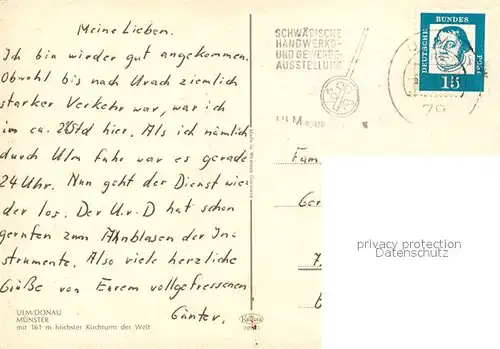 Meine Lieben.
Ich bin wieder gut angekommen.
Obwohl bis nach Urach ziemlich
starker Verkehr war, war ich
im ca. 2 Std hier. Als ich nämlich
durch Ulm fuhr war es gerade
24 Uhr. Nun geht der Dienst wie-
der los. Der U.v.D hat schon
gerufen zum Ahnblasen der In-
strumente. Also viele herzliche
Grüße von Eurem vollgefressenen
Günter.
ULM/DONAU
MÜNSTER
mit 161 m höchster Kirchturm der Welt
SCHWÄBISCHE
HANDWERKS-
UND GEWERBE-
AUSSTELLUNG
ULM
DEUTSCHE
BUNDES
POST
15
79
Fam
privacy protection
Datenschutz